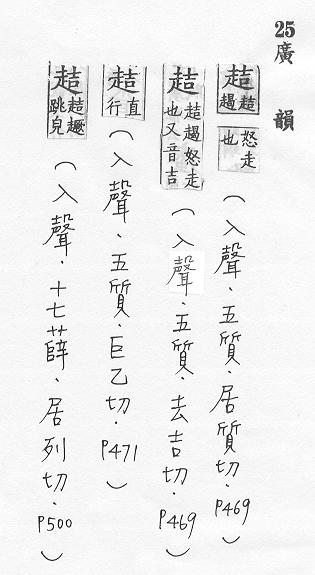 25廣韻
趌趌怒走也（入聲．五質．居質切．P469）
趌趌怒走也又音吉（入聲．五質．去吉切．P469）
趌直行（入聲．五質．巨乙切．P471）
趌趌跳皃（入聲．十七薛．居列切．P500）